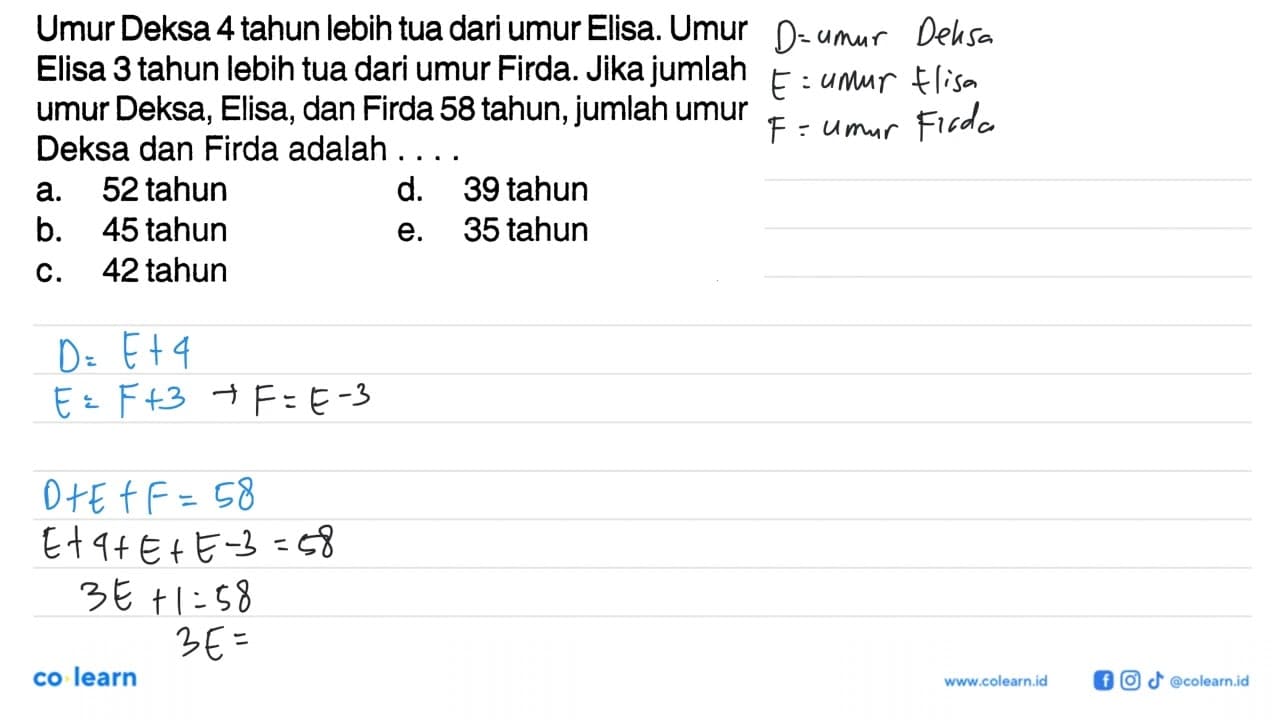 Umur Deksa 4 tahun lebih tua dari umur Elisa. Umur
Elisa 3 tahun lebih tua dari umur Firda. Jika jumlah
umur Deksa, Elisa, dan Firda 58 tahun, jumlah umur
Deksa dan Firda adalah . . . .
a. 52 tahun d. 39 tahun
b. 45 tahun e. 35 tahun
c. 42 tahun
D = umur Deksa
E = umur Elisa
F = umur Firda
D = E + 4
E = F + 3 → F = E - 3
D + E + F = 58
E + 4 + E + E - 3 = 58
3E + 1 = 58
3E =
co learn
www.colearn.id @colearn.id